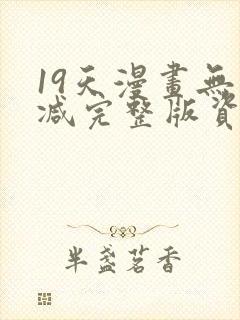 19天漫畫無
减完整版資
半盞茗香